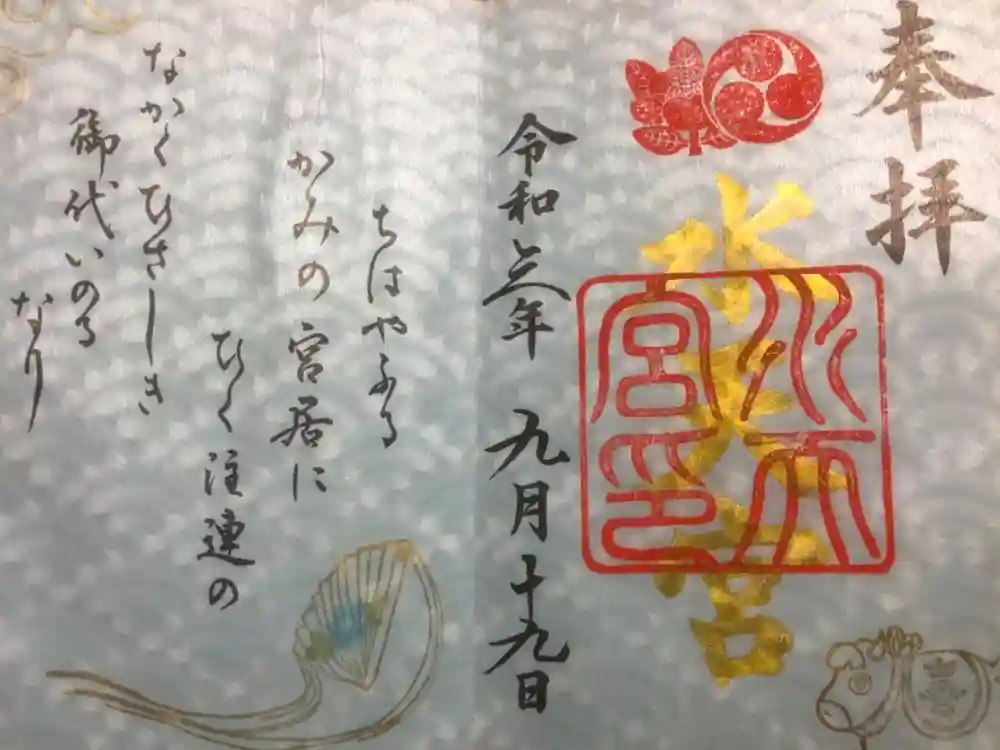 奉拝
水天宮
水天宮印
令和三年 九月十九日
ちはやふる
かみの宮居に
ひく注連の
なかくひさしき
御代いのる
なり